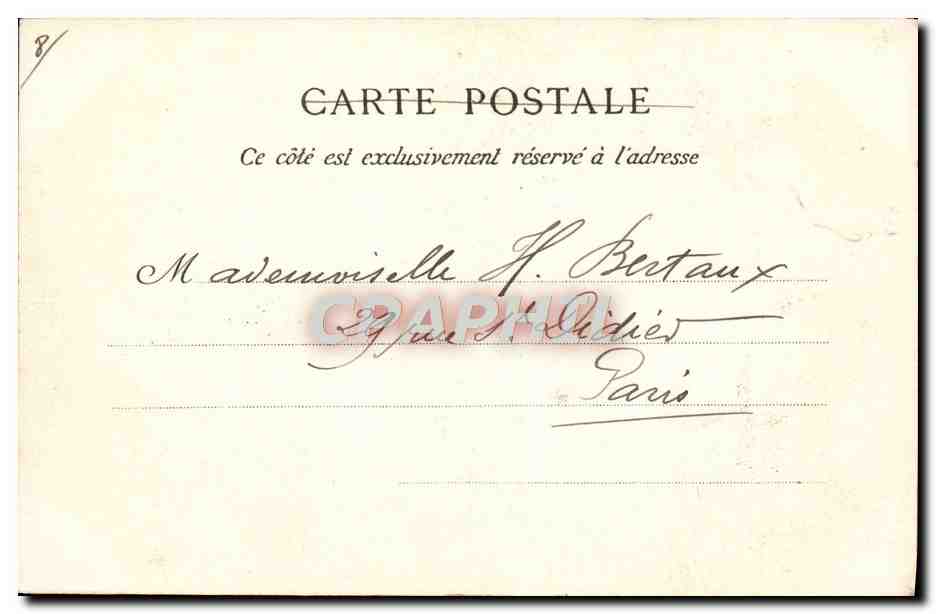 8/
CARTE POSTALE
Ce côté est exclusivement réservé à l'adresse
Mademoiselle H. Bertaux
29 rue St Didier
Paris
CRAPHO!